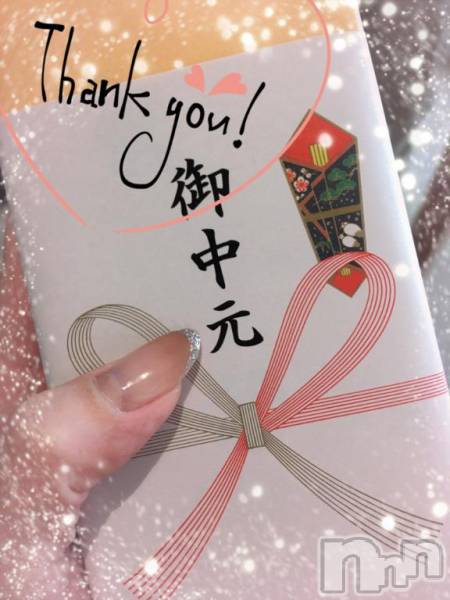 Thank you!
御中元
nnn